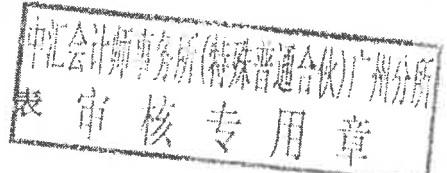 中汇会计师事务所(特殊普通合伙)广州分所
表 审核专用章